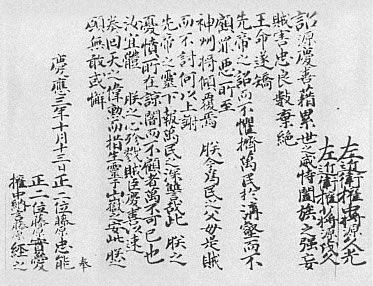 左近衛権中将源久光
左近衛権少将源茂久
詔源慶喜藉累世之威恃闔族之強妄
賊害忠良數棄絶
王命遂矯
先帝之詔而不懼擠萬民於溝壑而不
顧罪惡所至
神州将傾覆焉 朕今為民之父母是賊
而不討何以上謝
先帝之靈下報萬民之深讐哉此 朕之
憂憤所在諒闇而不顧者萬不可已也
汝宜體 朕之心殄戮賊臣慶喜以速
奏回天之偉勲而措生靈于山嶽之安此 朕之
願無敢或懈
慶應三年十月十三日 正二位藤原忠能
正二位藤原實愛
権中納言藤原經之 奉